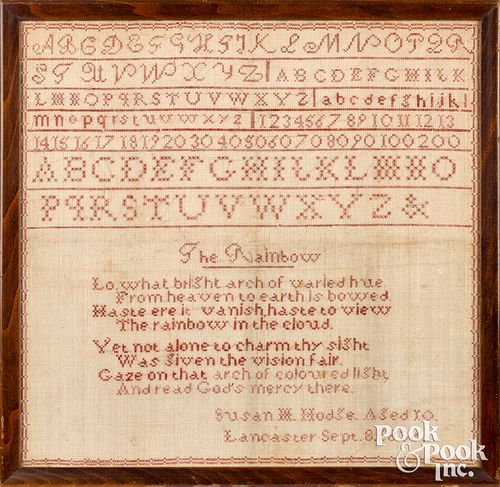 A B C D E F G H I K L M N O P Q R
S T U V W X Y Z A B C D E F G H I L K
L M N O P q R S T U V W X Y Z a b c d e f g h i j k l
m n o p q r s t u v w x y z 1 2 3 4 5 6 7 8 9 10 11 12 13
14 15 16 17 18 19 20 30 40 50 60 70 80 90 100 200
A B C D E F G H I L K L M N O
P q R S T U V W X Y Z &
The Rainbow
Lo, what bright arch of varied hue
From heaven to earth is bowed.
Haste ere it vanish, haste to view
The rainbow in the cloud.
Yet not alone to charm thy sight
Was given the vision fair.
Gaze on that arch of coloured light
And read God's mercy there.
Susan M. Hodge. Aged 10.
Lancaster Sept. 8
Pook
& Pook
Inc.